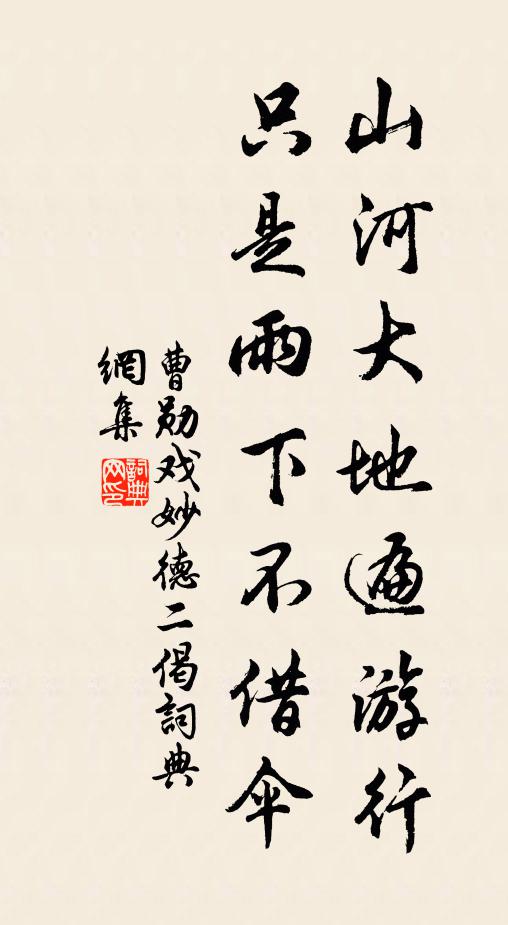 山河大地遍游行
只是雨下不借伞
曹勋戏妙德二偈詞典
網集
詞典网印